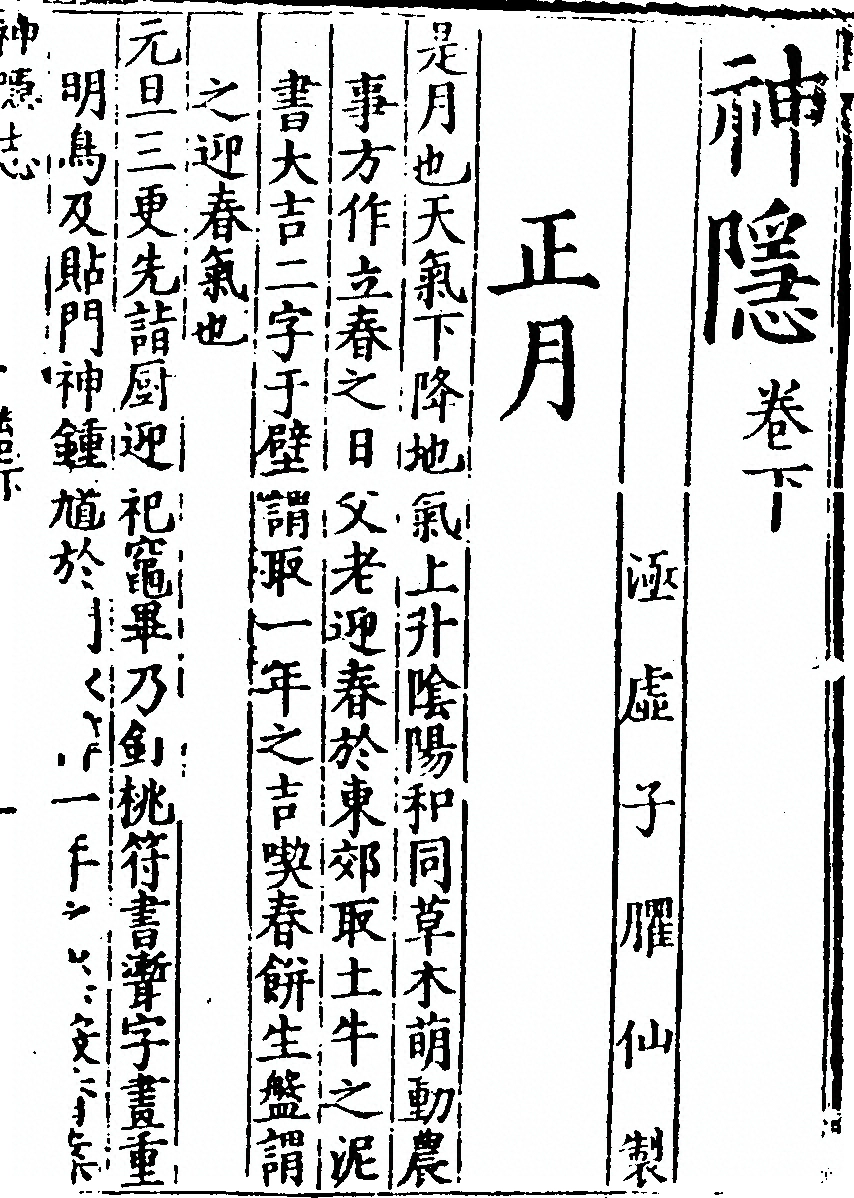 神隱卷下
涵虛子臞仙製
正月
是月也天氣下降地氣上升陰陽和同草木萌動農
事方作立春之日父老迎春於東郊取土牛之泥
書大吉二字于壁謂取一年之吉喫春餅生盤謂
之迎春氣也
元旦三更先詣厨迎祀竈畢乃釗桃符書聻字畫重
明鳥及貼門神鍾馗於
一年
神隱志